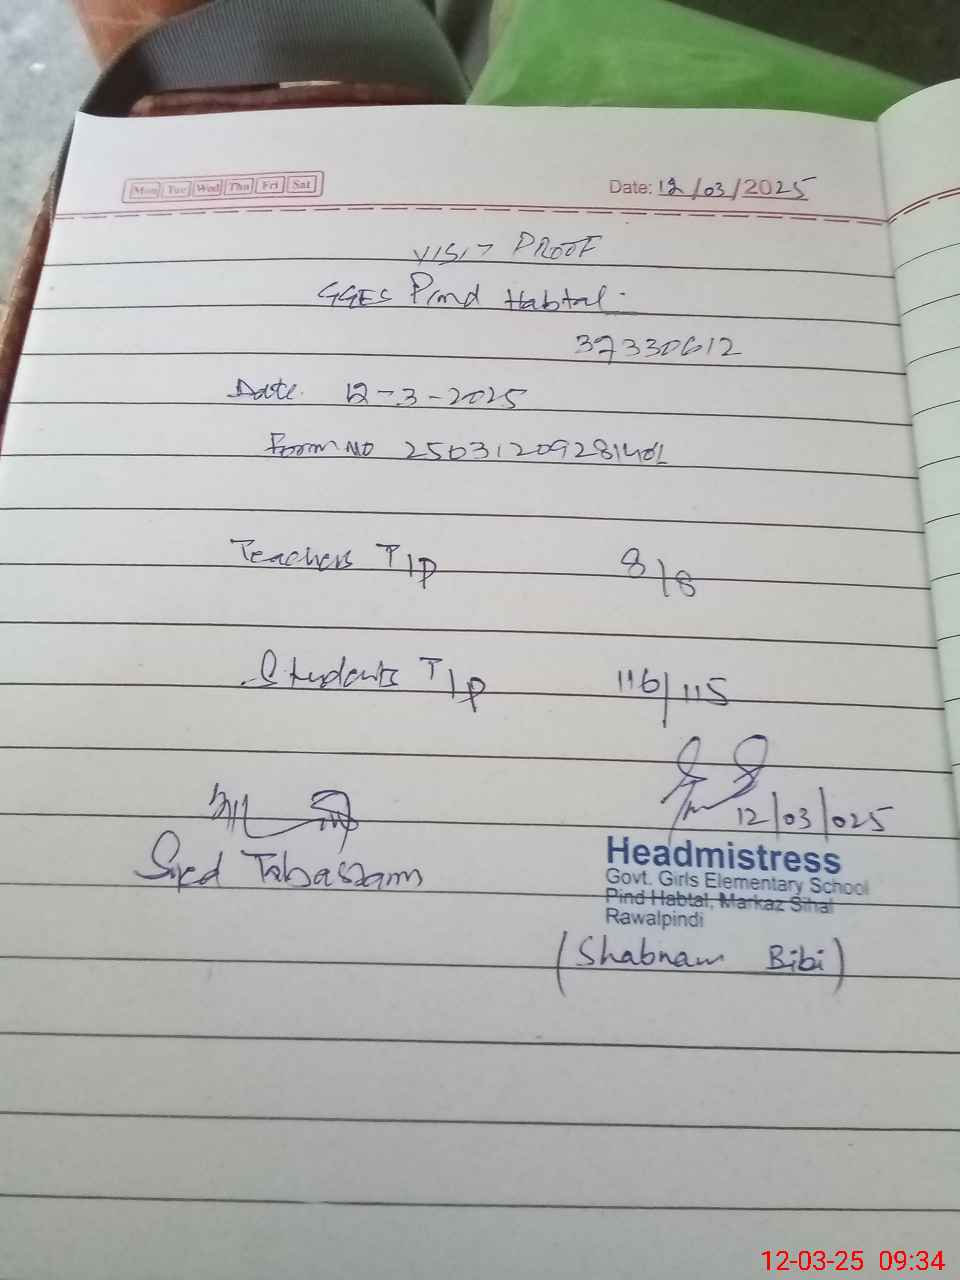 Mon Tue Wed Thu Fri Sat
Date: 12/03/2025
VISIT PROOF
GGES Pind Habtal
37330612
Date. 12-3-2025
Form No 25031209281401
Teachers T/P 8/8
Students T/P 116/115
12/03/025
Syed Tabassam
Headmistress
Govt. Girls Elementary School
Pind Habtal, Markaz Sihal
Rawalpindi
(Shabnam Bibi)
12-03-25 09:34